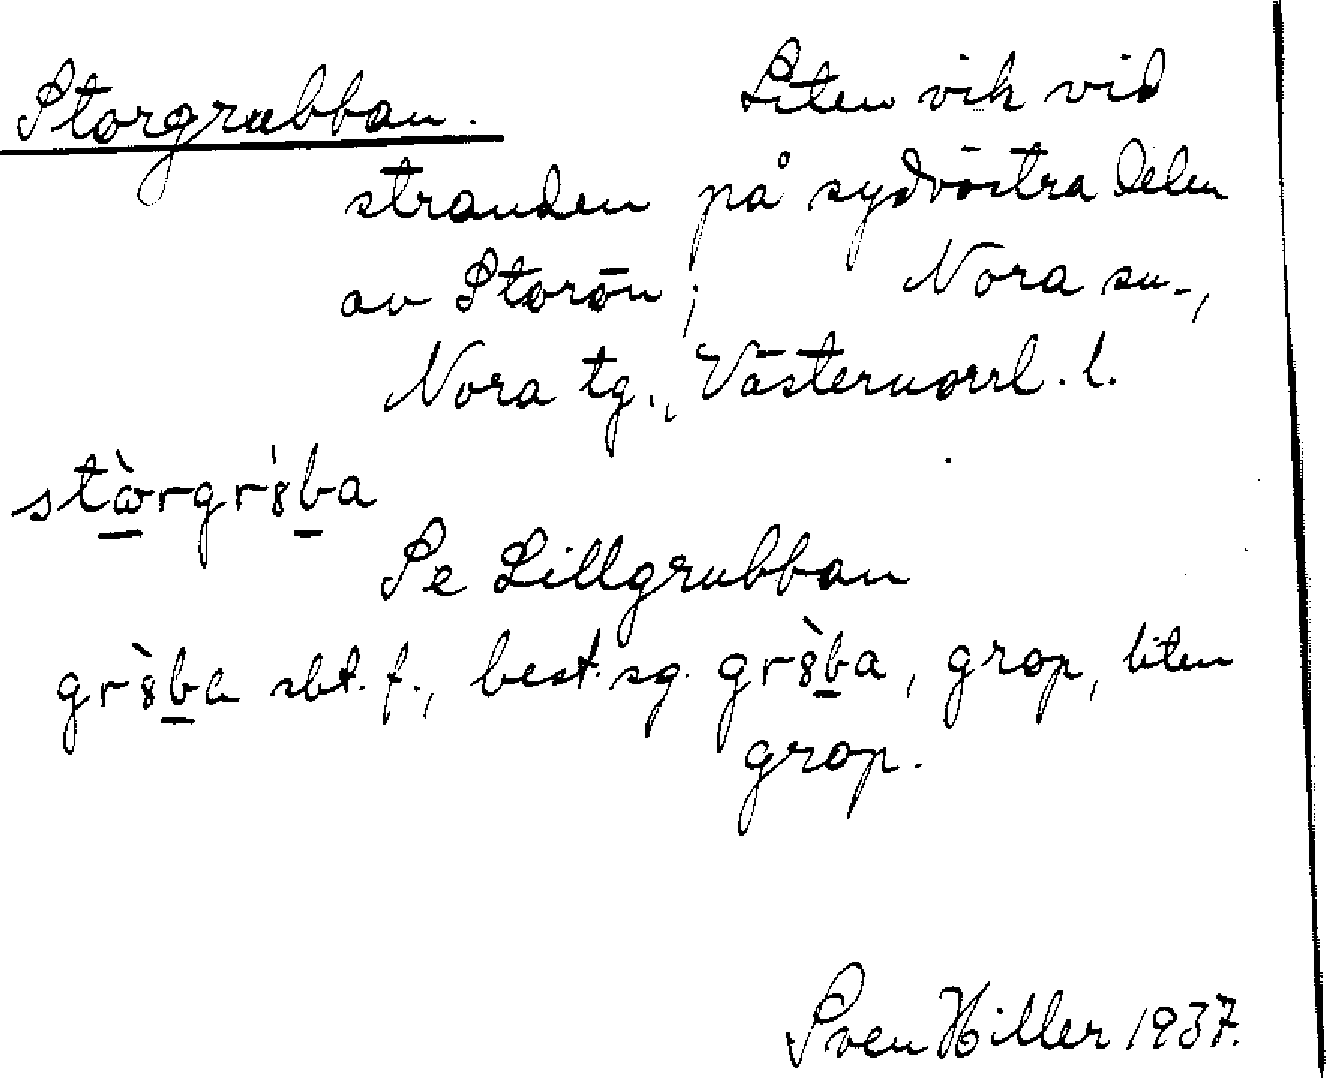 Storgrubban. Liten vik vid
stranden på sydvästra delen
av Storön; Nora sn.,
Nora tg., Västernorrl. l.
stὼrgr8̍ba
Se Lillgrubban
gr8̀ba sbt. f., best. sg. gr8̀ba, grop, liten
grop.
Sven Hiller 1937.